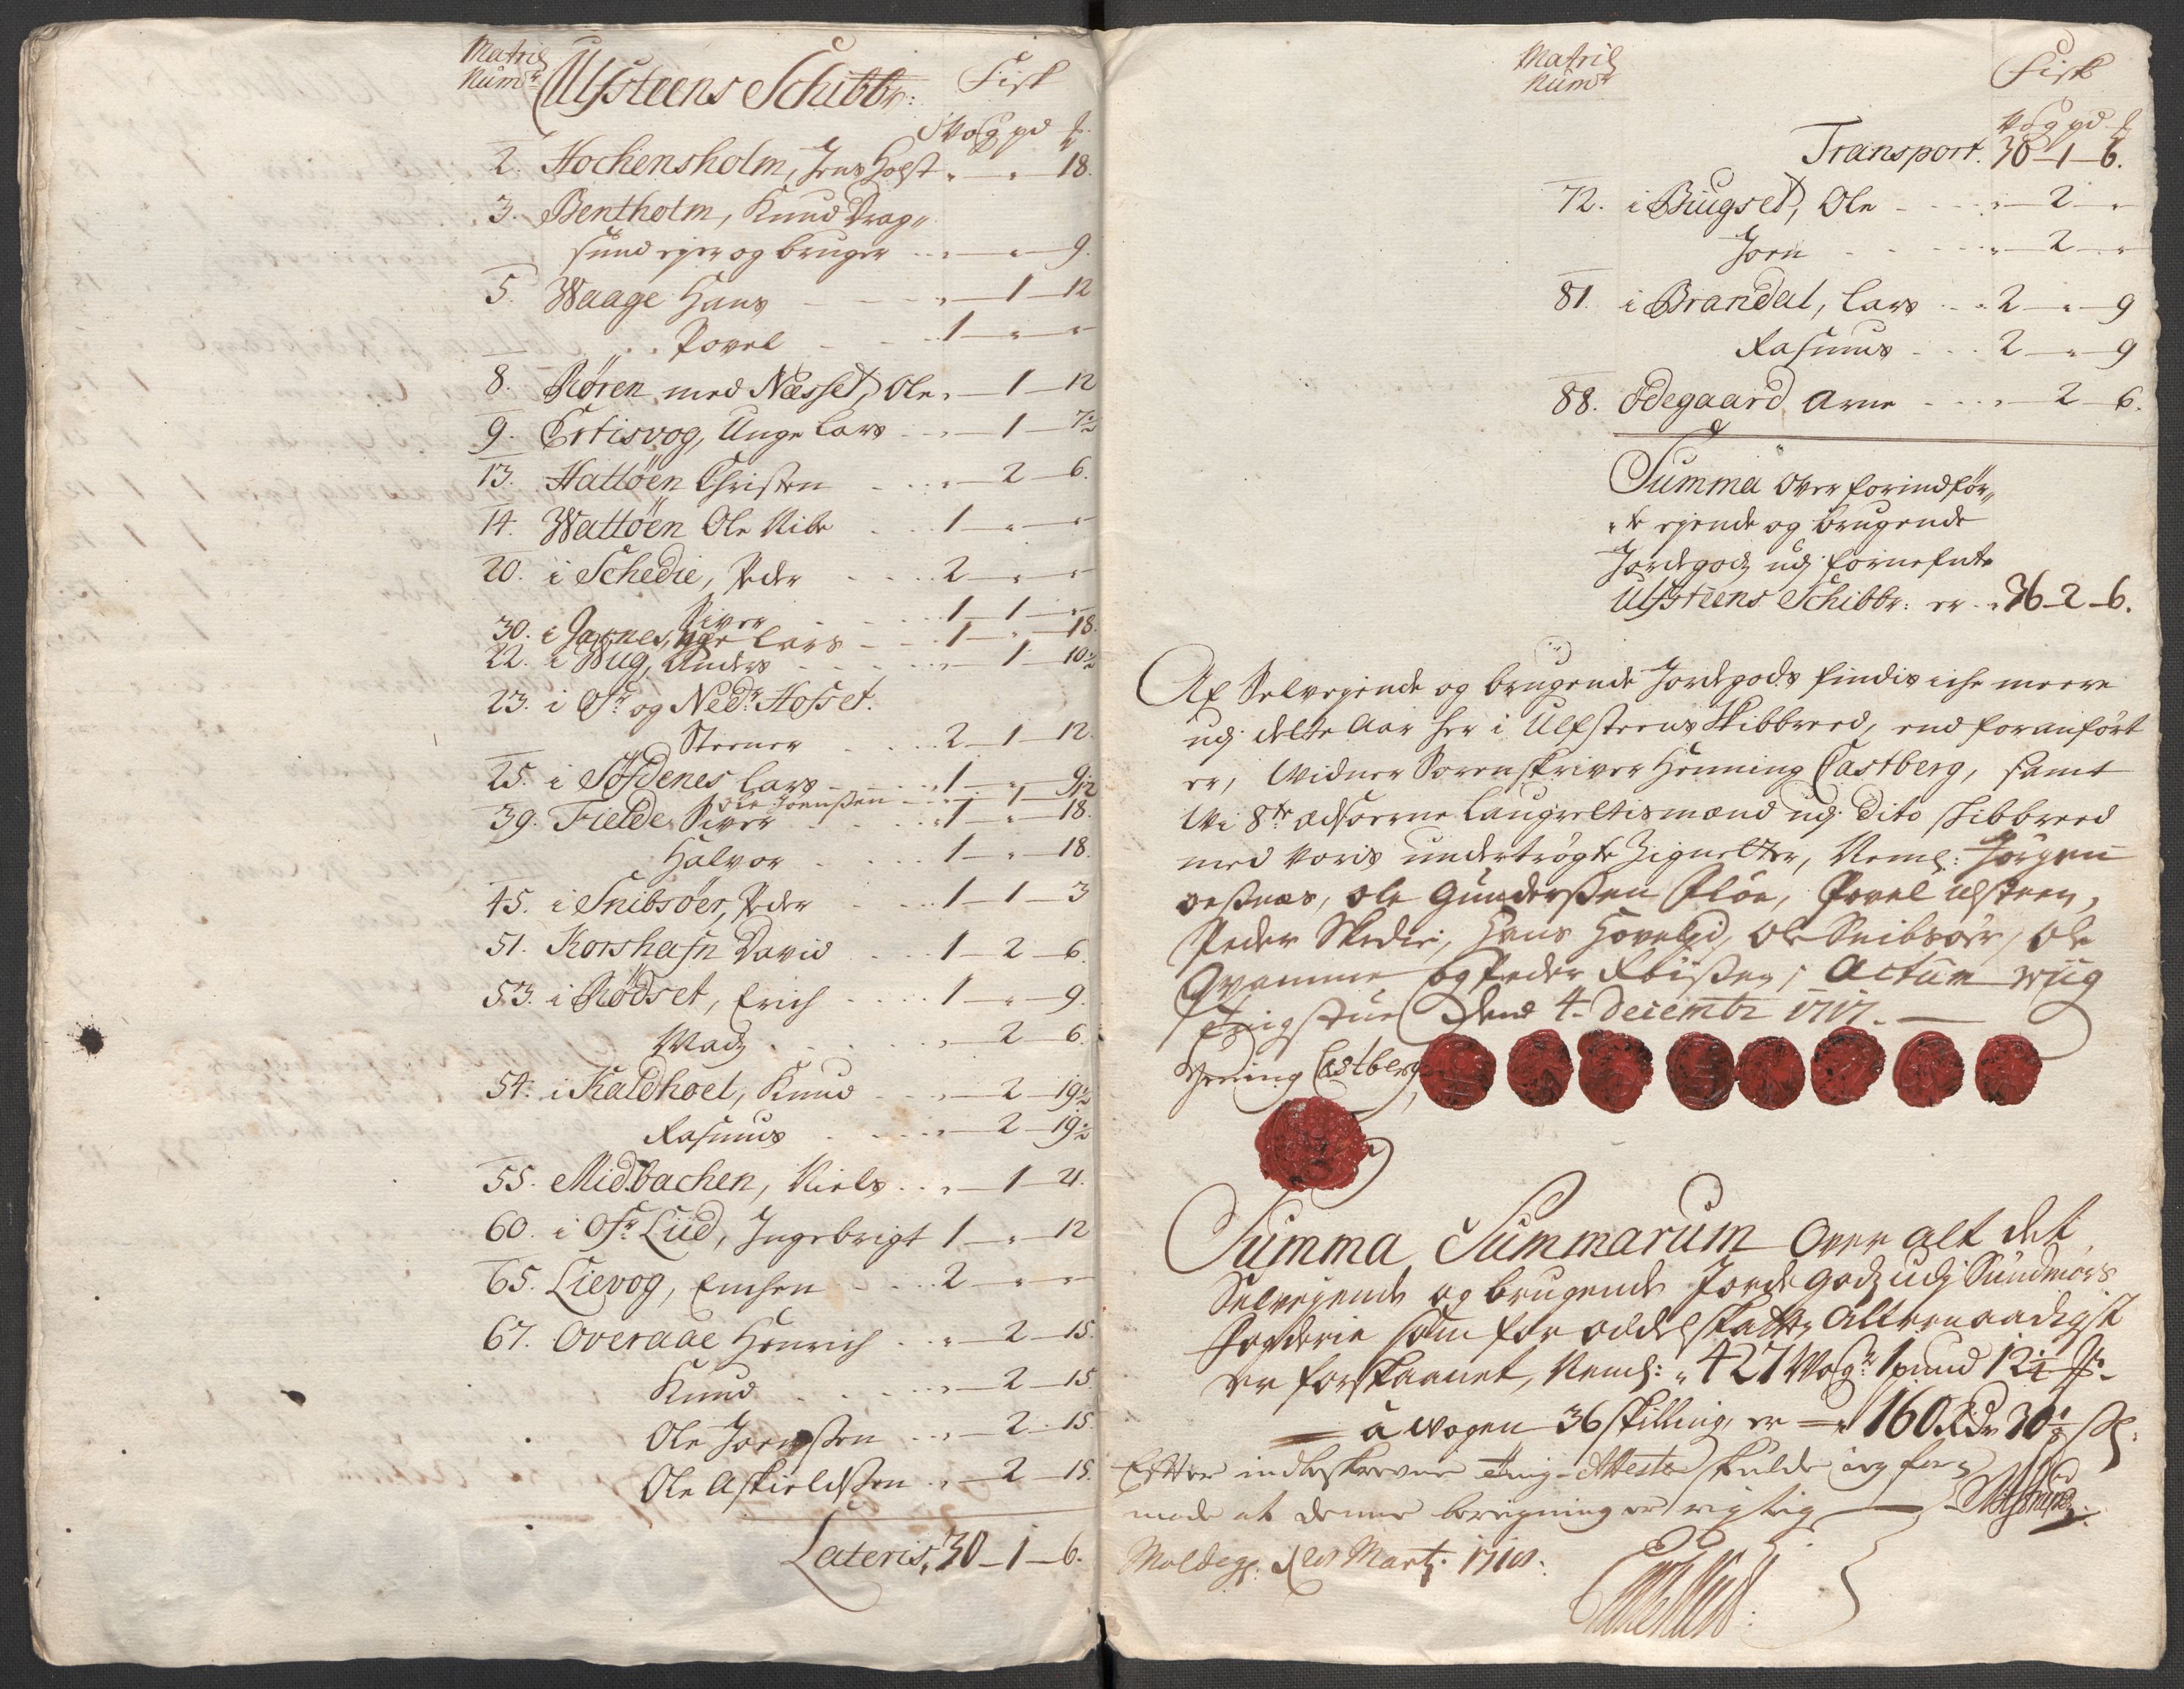 Matric
Numr. Ulfsteens Schibbr: Fisk
Wog pd ℔
2. Hochensholm, Jens Holst „ — „ — 18.
3. Bentholm, Knud Drag„
sund ejer og bruger „ — „ — 9.
5. Waage Hans „ — 1 — 12
Povel 1 — „ — „
8. Røren med Næsset, Ole „ — 1 — 12
9. Ertisvog, Unge Lars „ — 1 — 7½
13. Hattøen Christen „ — 2 — 6.
14. Wattøen Ole Ribe 1 — „ — „
20. i Schedie, Peder 2 — „ — „
Siver 1 — 1 — „
30. i Garnes, Lars 1 — „ — 18.
22. i Wug, Anders „ — 1 — 10½
23. i Ofr og Nedr Hofset.
Steener 2 — 1 — 12.
25. i Søfdenes Lars 1 — „ — 9½
Ole Joensen 1 — 1 —
39. Fielde Siver 1 — „ — 18.
Halvor 1 — „ — 18.
45. i Snibsøer, Peder 1 — 1 — 3
51. Korshafn David 1 — 2 — 6.
53. i Rødset, Erich 1 — „ — 9.
Madz „ — 2 — 6.
54. i Kaldhoel, Knud „ — 2 — 19½
Rasmus „ — 2 — 19½
55. Midbachen, Niels „ — 1 — 21.
60. i Ofr Liid, Ingebrigt 1 — „ — 12
65. Lievog, 2 — „ — „
67. Overaae Henrich „ — 2 — 15.
Knud „ — 2 — 15.
Ole Joensen „ — 2 — 15.
Ole Askieldsen „ — 2 — 15.
Lateris, 30 — 1 — 6.
Matric
Numr Fisk
Wog pd ℔
Transport. 30 — 1 — 6.
72. i Biugset, Ole „ — 2 — „
Joen „ — 2 — „
81. i Brandal, Lars 2 — „ — 9
Rasmus 2 — „ — 9
88. Ødegaard Arne „ — 2 — 6.
Summa Over forindfør„
„te ejende og brugende
Jordegodz udj fornefnte
Ulfsteens Schibbr: er „ 36 — 2 — 6.
Af Selvejende og brugende Jordegods findis iche meere
udj dette Aar her i Ulfsteens Skibbreed, end foranført
er, Widner Sorenskriver Henning Castberg, samt
Wi 8te Laugrettismænd udj Dito skibbreed
med voris undertrøgte Zignetter, Neml: Jørgen
Ole Gundersen Fløe, Povel Ulsteen,
Peder Skedie, Hans Ole Snibsøer, Ole
og Peder Actum Wiig
Tingstue Dend 4. Decembr 1717.
Hening Castberg
Summa Summarum Over alt det
Selvejende og brugende Jorde Godz udj Sundmørs
Fogderie som for Oddelskatten Allernaadigst
er forskaanet, Neml: „ 427 Wogr 1 pund 12¼ ℔
à Wogen 36 skilling, er — 160 Rdr 30 ß
Efter indbeskrevne Ting-Attester skulde ieg for„
mode at denne beregning er rigtig
Moldegd: d Marti 1718.